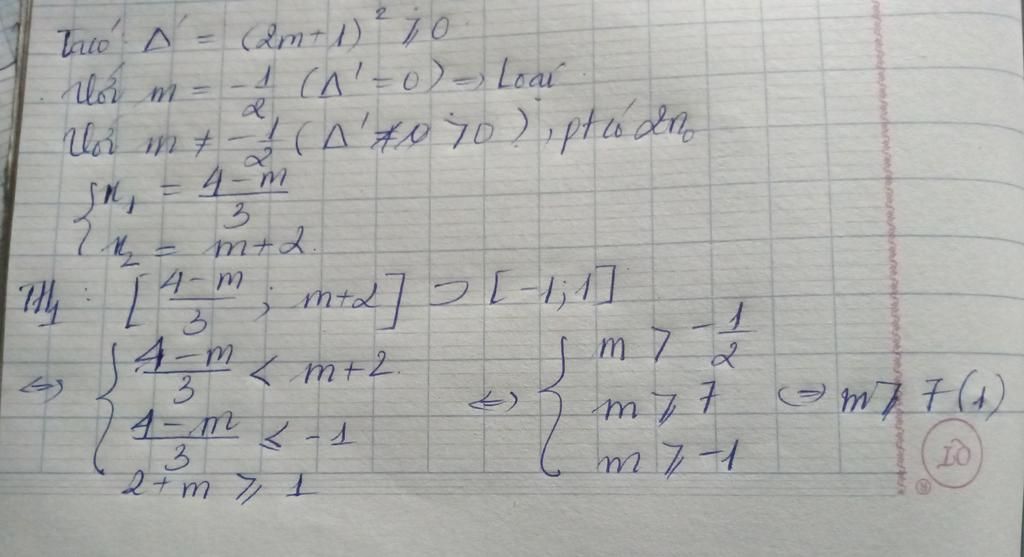 Ta có: Δ' = (2m+1)² ⩾ 0
Với m = -1/2 (Δ' = 0) => Loại
Với m ≠ -1/2 (Δ' > 0), pt có 2 n₀
{ x₁ = (4-m)/3
x₂ = m+2.
TH₁: [(4-m)/3 ; m+2] ⊃ [-1;1]
<=> { (4-m)/3 < m+2 <=> { m > -1/2
(4-m)/3 ⩽ -1 m ⩾ 7 <=> m ⩾ 7 (1)
2+m ⩾ 1 m ⩾ -1
10